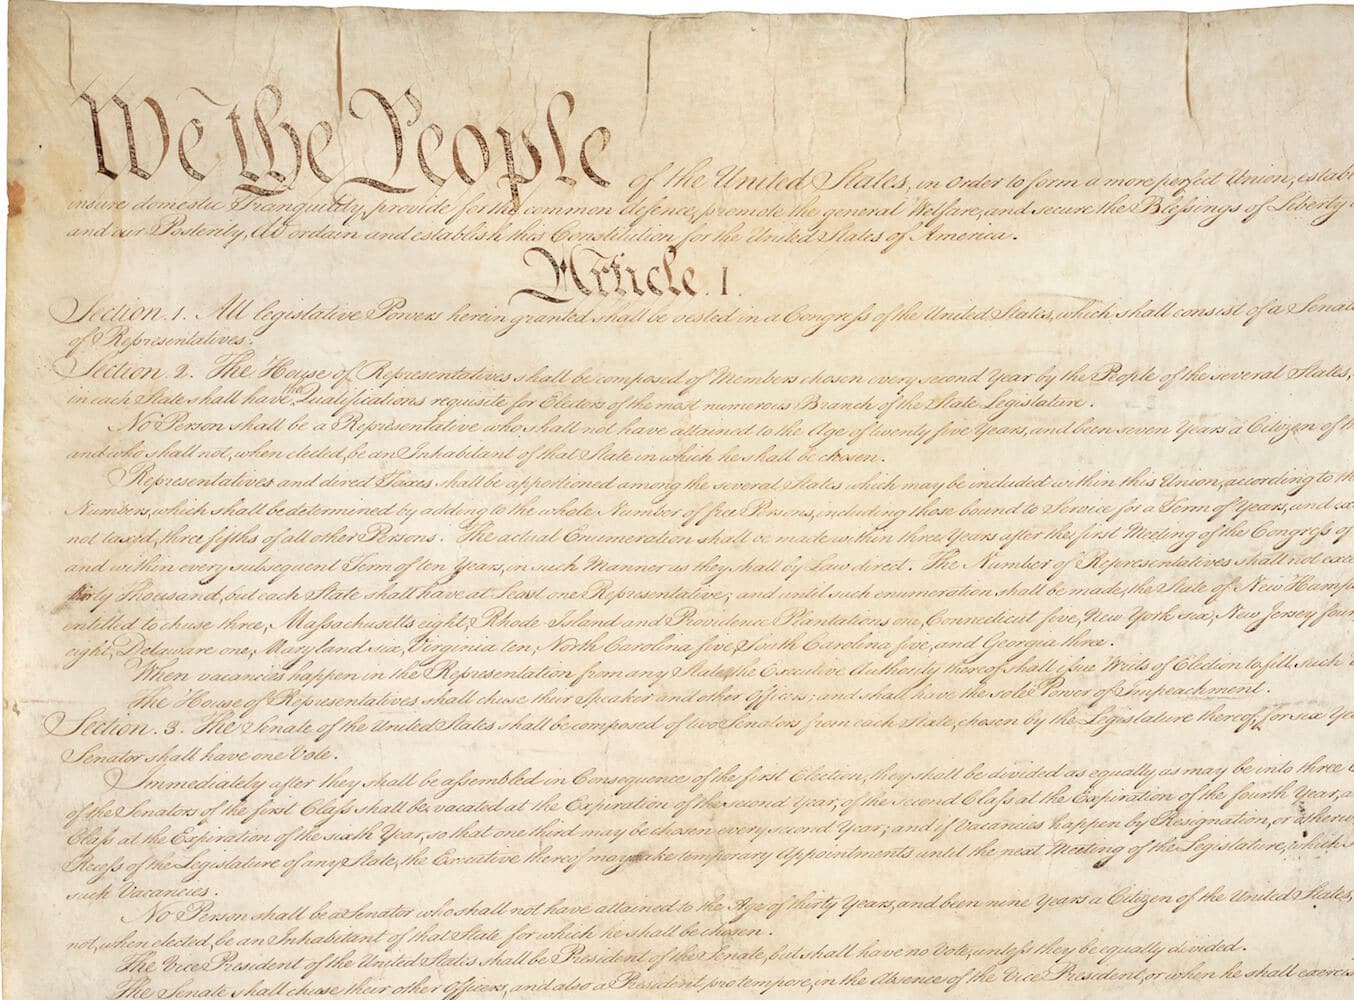 We the People of the United States, in Order to form a more perfect Union, establ
insure domestic Tranquility, provide for the common defence, promote the general Welfare, and secure the Blessings of Liberty
and our Posterity, do ordain and establish this Constitution for the United States of America.
Article. I.
Section. 1. All legislative Powers herein granted shall be vested in a Congress of the United States, which shall consist of a Senate
of Representatives.
Section. 2. The House of Representatives shall be composed of Members chosen every second Year by the People of the several States,
in each State shall have the Qualifications requisite for Electors of the most numerous Branch of the State Legislature.
No Person shall be a Representative who shall not have attained to the Age of twenty five Years, and been seven Years a Citizen of th
and who shall not, when elected, be an Inhabitant of that State in which he shall be chosen.
Representatives and direct Taxes shall be apportioned among the several States which may be included within this Union, according to th
Numbers, which shall be determined by adding to the whole Number of free Persons, including those bound to Service for a Term of Years, and ex
not taxed, three fifths of all other Persons. The actual Enumeration shall be made within three Years after the first Meeting of the Congress of
and within every subsequent Term of ten Years, in such Manner as they shall by Law direct. The Number of Representatives shall not exce
thirty Thousand, but each State shall have at Least one Representative; and until such enumeration shall be made, the State of New Hamp
entitled to chuse three, Massachusetts eight, Rhode-Island and Providence Plantations one, Connecticut five, New York six, New Jersey four
eight, Delaware one, Maryland six, Virginia ten, North Carolina five, South Carolina five, and Georgia three.
When vacancies happen in the Representation from any State, the Executive Authority thereof shall issue Writs of Election to fill such
The House of Representatives shall chuse their Speaker and other Officers; and shall have the sole Power of Impeachment.
Section. 3. The Senate of the United States shall be composed of two Senators from each State, chosen by the Legislature thereof, for six Yea
Senator shall have one Vote.
Immediately after they shall be assembled in Consequence of the first Election, they shall be divided as equally as may be into three
of the Senators of the first Class shall be vacated at the Expiration of the second Year, of the second Class at the Expiration of the fourth Year, a
Class at the Expiration of the sixth Year, so that one third may be chosen every second Year; and if Vacancies happen by Resignation, or otherwi
Recess of the Legislature of any State, the Executive thereof may make temporary Appointments until the next Meeting of the Legislature, which s
such Vacancies.
No Person shall be a Senator who shall not have attained to the Age of thirty Years, and been nine Years a Citizen of the United States,
not, when elected, be an Inhabitant of that State for which he shall be chosen.
The Vice President of the United States shall be President of the Senate, but shall have no Vote, unless they be equally divided.
The Senate shall chuse their other Officers, and also a President pro tempore, in the Absence of the Vice President, or when he shall exercis